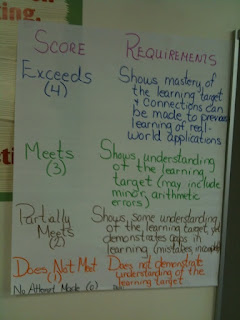 SCORE REQUIREMENTS
Exceeds
(4)
Shows mastery of
the learning target
+ Connections can
be made to previous
learning of real-
world applications
Meets
(3)
Shows understanding
of the learning
target (may include
minor arithmetic
errors)
Partially
Meets
(2)
Shows some understanding
of the learning target,
demonstrates gaps in
learning (mistakes,
Does Not Meet
Does not demonstrate
understanding of the
learning target
No Attempt Made (0)